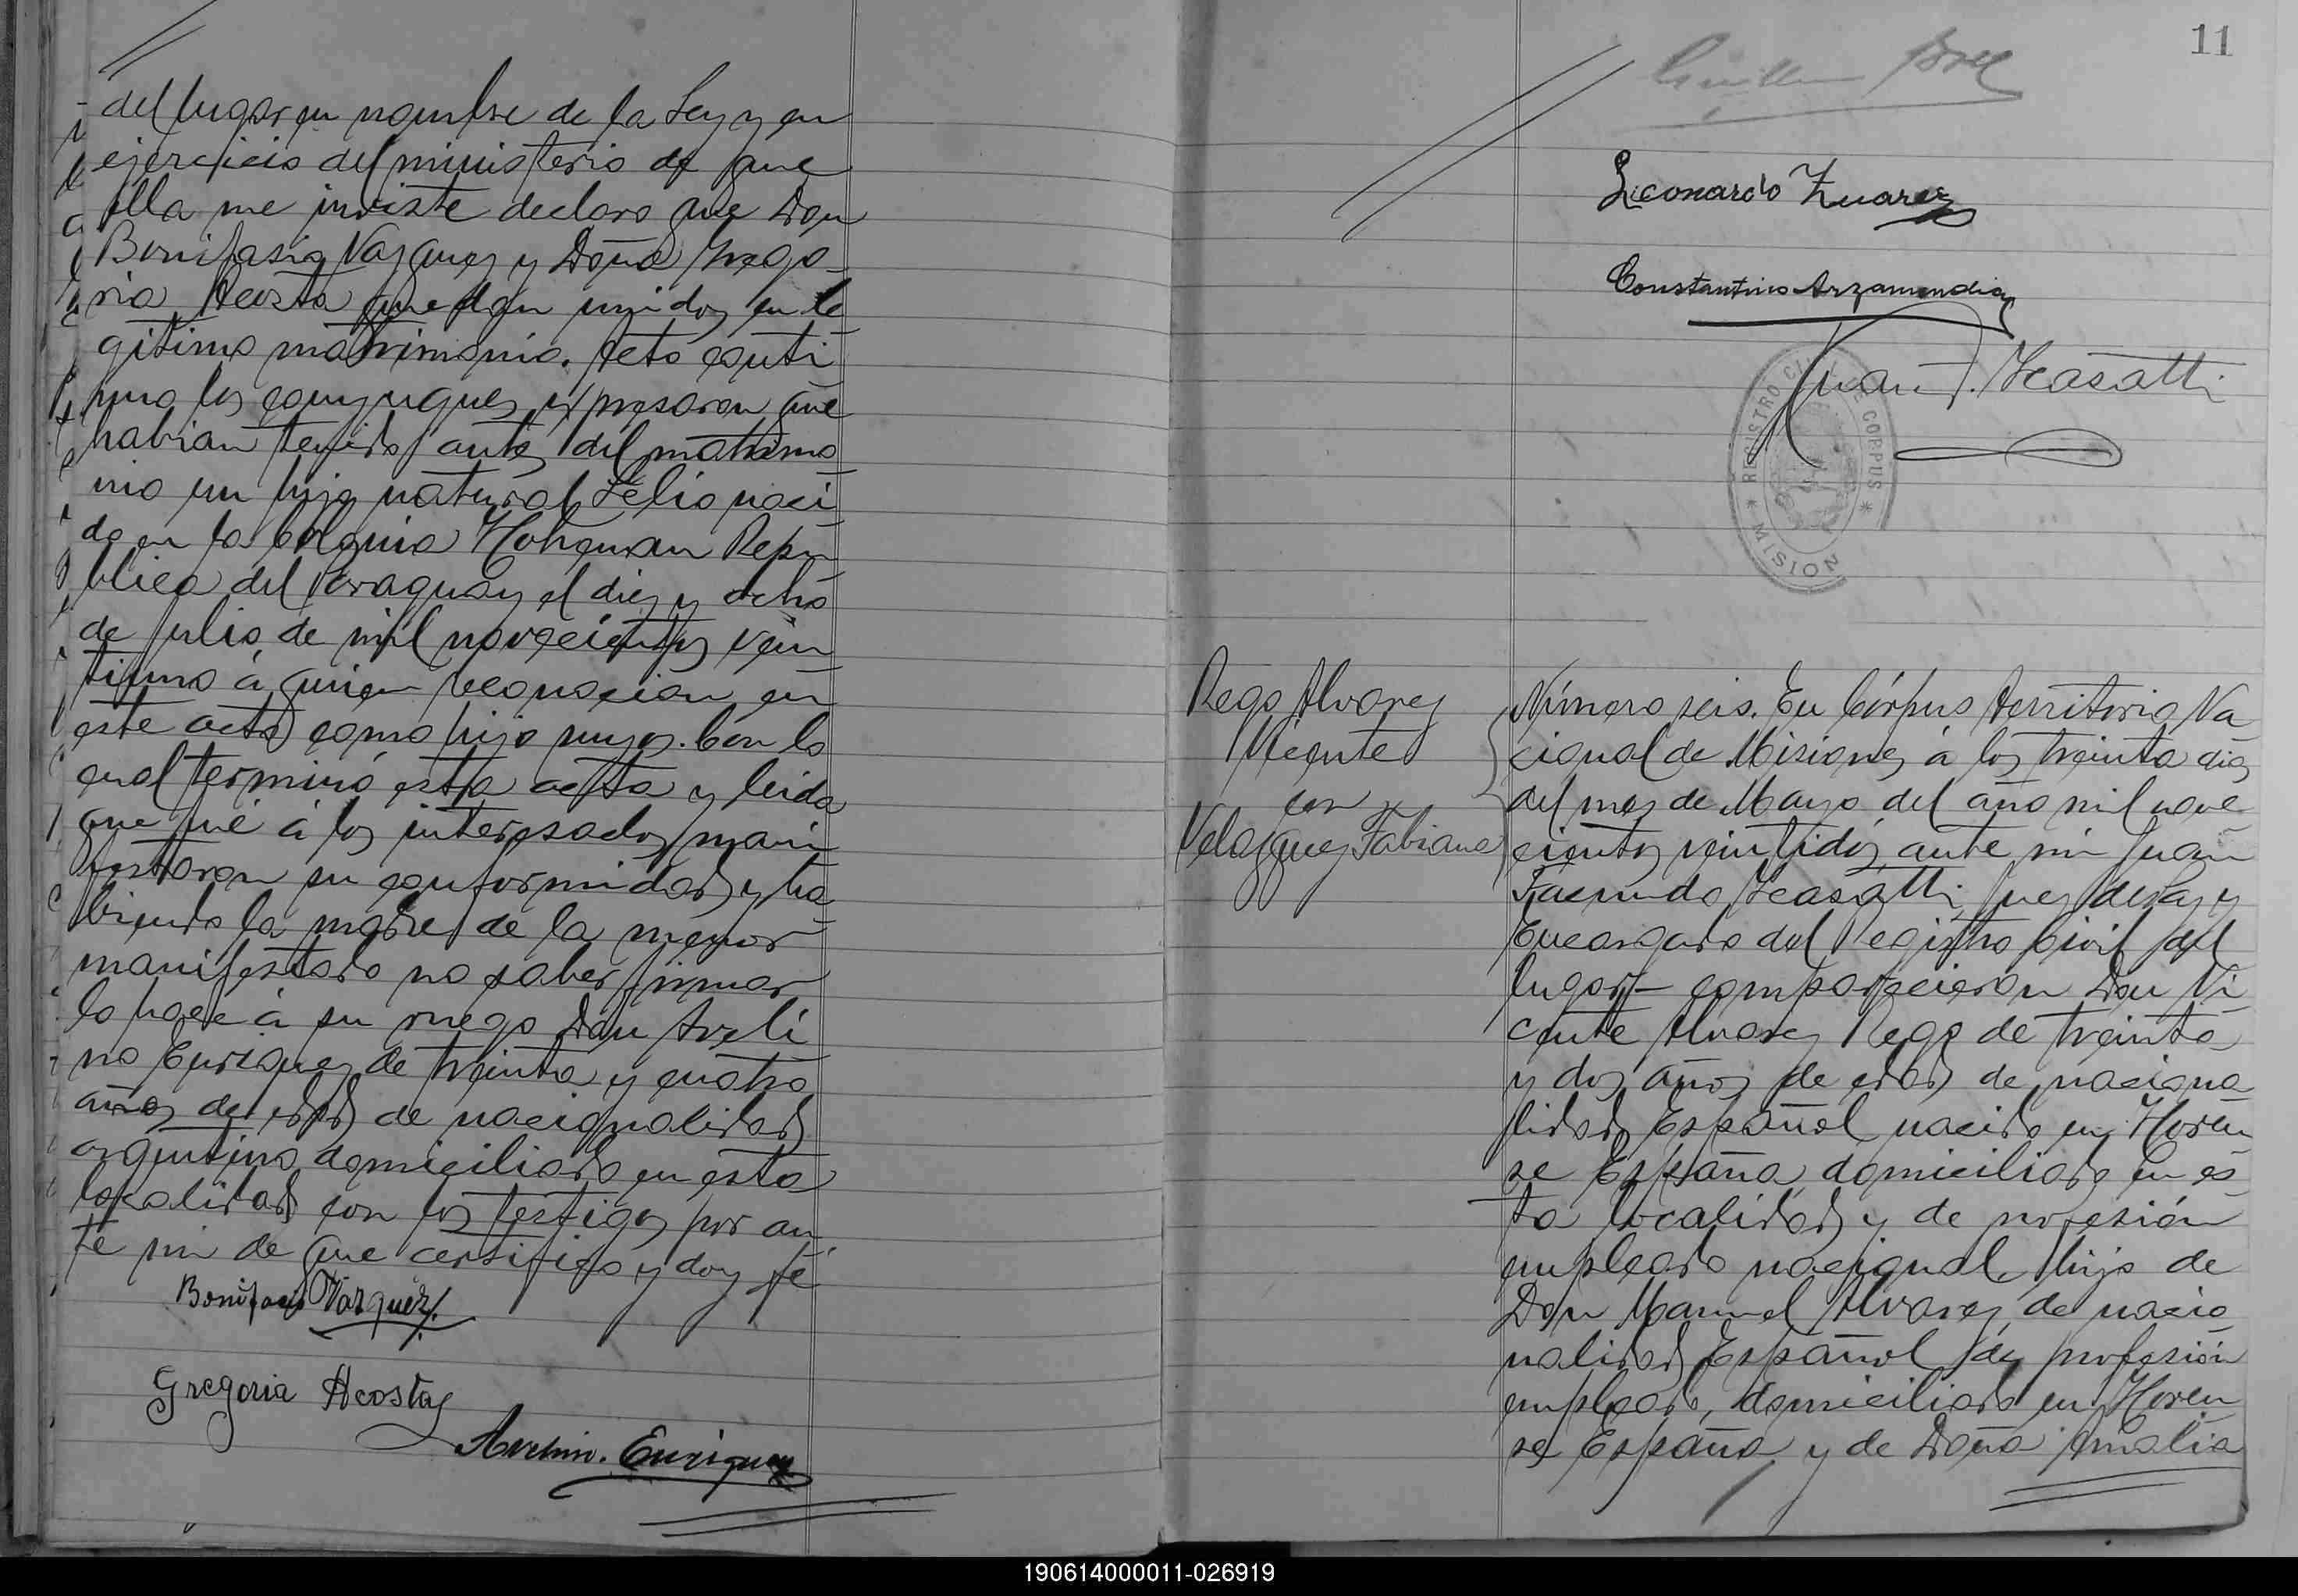 del lugar en nombre de la Ley y en
ejercicio del ministerio de que
ella me inviste declaro que Don
Bonifasio Vazquez y Doña Grego-
ria Acosta quedan unidos en le
gitimo matrimonio. Acto conti
nuo los conyugues expresaron que
habian tenido antes del matrimo
nio un hijo natural Lelio naci
do en la Colonia Hohenau Repu
blica del Paraguay el diez y ocho
de Julio de mil novecientos vein
tiuno á quien reconocian en
este acto como hijo suyo. Con lo
cual terminó esta acta y leida
que fué á los interesados mani
festaron su conformidad y ha
biendo la madre de la menor
manifestado no saber firmar
lo hace á su ruego Don Aveli
no Enriquez de treinta y cuatro
años de edad de nacionalidad
argentino domiciliado en esta
localidad con los testigos por an
te mi de que certifico y doy fé
Bonifacio Vazquez
Gregoria Acosta
Avelino Enriquez
11
Leonardo Zuarez
Constantino Arzamendia
Juan F. Icasatti
REGISTRO CIVIL DE CORPUS
* MISIONES *
Rego Alvarez
Vicente
con
Velazquez Fabiana
Número seis. En Córpus Territorio Na
cional de Misiones á los treinta dias
del mes de Mayo del año mil nove
cientos veintidós, ante mi Juan
Facundo Icasatti, Juez de Paz y
Encargado del Registro Civil del
lugar - comparecieron Don Vi
cente Alvarez Rego de treinta
y dos años de edad de naciona
lidad Español nacido en Horen
se España domiciliado en es
ta localidad y de profesión
empleado nacional, hijo de
Don Manuel Alvarez de nacio
nalidad Español de profesión
empleado, domiciliado en Horen
se España y de Doña Amalia
190614000011-026919